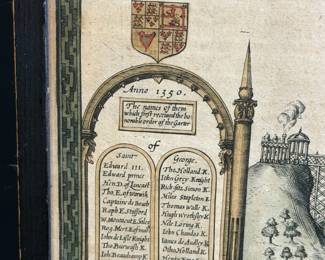 Anno 1350.
The names of them
which first received the ho
norable order of the Garter
of
Saint
Edward III
Edward prince
Hen. D. of Lancast
Tho. E. of warwik
Captain de Beuch
Raph E. Stafford
W. Montecut E. Salis
Rog. Mort. E. of mar
John de Lisle Knight
Tho Burwash K.
Joh Beauchamp K
George.
Tho. Holland K.
John Grey Knight
Rich. fits Simon K.
Miles Stapleton K
Thomas Walle K.
Hugh Wrotesley K
Nele Loring K
John Chandos K
James de Audley K
Otho Holland K